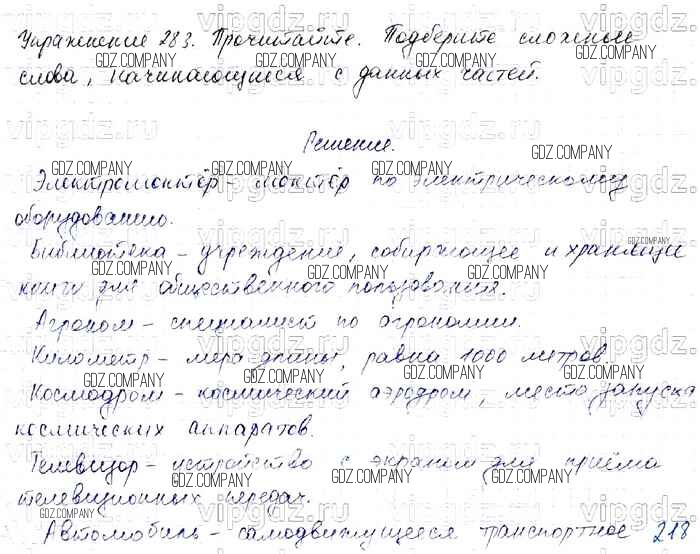 Упражнение 283. Прочитайте. Подберите сложные
слова, начинающиеся с данных частей.
Решение.
Электромонтёр – монтёр по электрическому
оборудованию.
Библиотека – учреждение, собирающее и храняще
книги для общественного пользования.
Агроном – специалист по агрономии.
Километр – мера длины, равна 1000 метров.
Космодром – космический аэродром, место запуска
космических аппаратов.
Телевизор – устройство с экраном для приёма
телевизионных передач.
Автомобиль – самодвижущееся транспортное 218
vipgdz.ru
GDZ.COMPANY